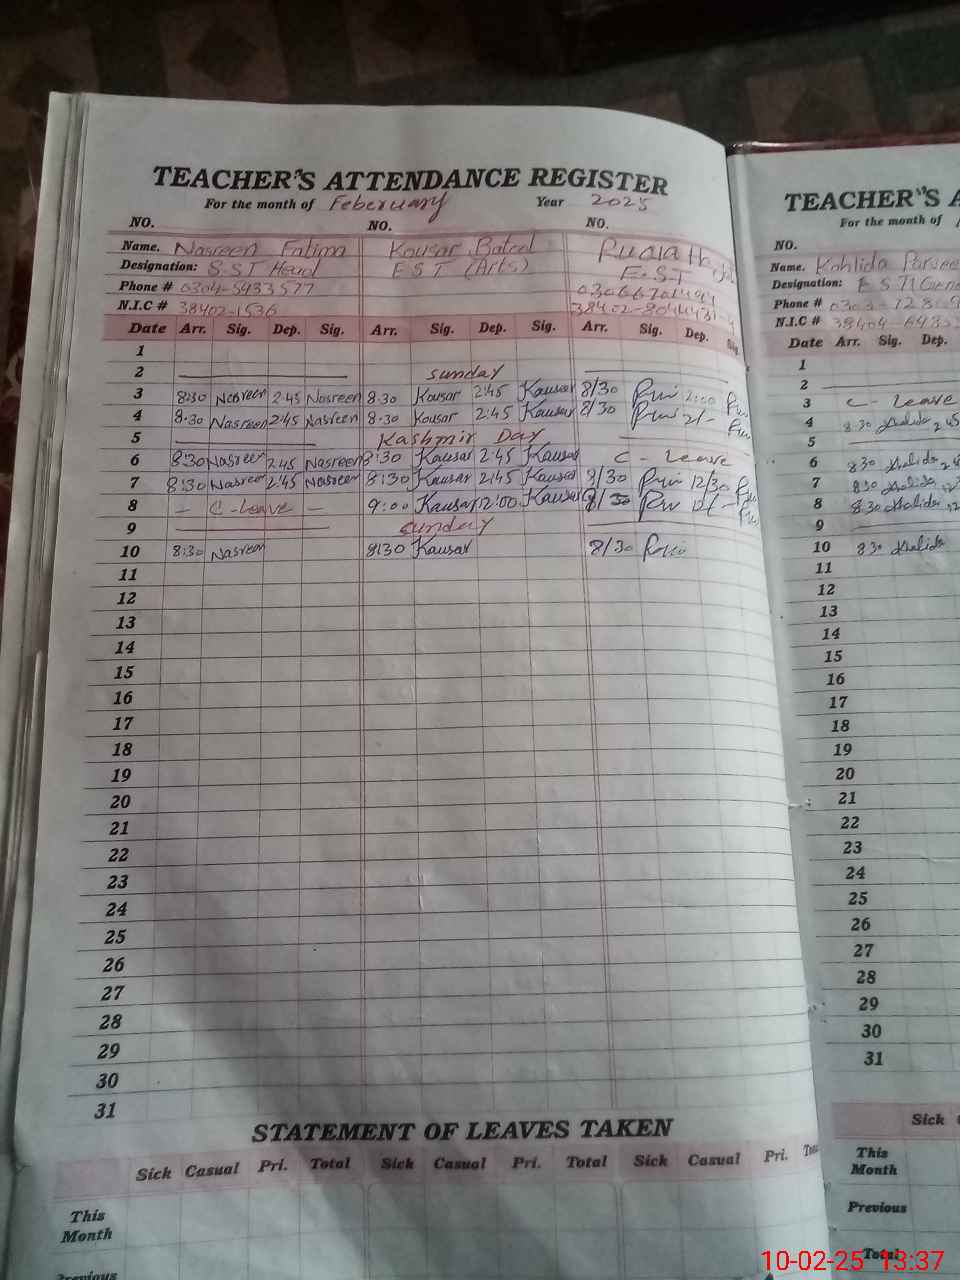 TEACHER'S ATTENDANCE REGISTER
For the month of Feberuary Year 2025
NO. NO. NO.
Name. Nasreen Fatima Kousar Batool
Designation: S.S.T Head E S T (Arts) E.S.T
Phone # 0304-5433577
N.I.C # 38402-1536
Date Arr. Sig. Dep. Sig. Arr. Sig. Dep. Sig. Arr. Sig. Dep. Sig.
1
2 Sunday
3 8:30 Nasreen 2:45 Nasreen 8:30 Kousar 2:45 Kausar 8/30 2:00
4 8:30 Nasreen 2:45 Nasreen 8:30 Kousar 2:45 Kausar 8/30 2/-
5 Kashmir Day
6 8:30 Nasreen 2:45 Nasreen 8:30 Kausar 2:45 Kausar C - Leave
7 8:30 Nasreen 2:45 Nasreen 8:30 Kausar 2:45 Kausar 8/30 12/30
8 - C-Leave - 9:00 Kausar 12:00 Kausar 8/30 12/-
9 Sunday
10 8:30 Nasreen 8:30 Kausar 8/30
11
12
13
14
15
16
17
18
19
20
21
22
23
24
25
26
27
28
29
30
31
STATEMENT OF LEAVES TAKEN
Sick Casual Pri. Total Sick Casual Pri. Total Sick Casual Pri.
This
Month
Previous
TEACHER'S
For the month of
NO.
Name. Kahlida
Designation:
Phone #
N.I.C # 38404
Date Arr. Sig. Dep.
1
2
3 C - Leave
4 8:30 Khalida 2:45
5
6 8:30 Khalida
7 8:30 Khalida
8 8:30 Khalida
9
10 8:30 Khalida
11
12
13
14
15
16
17
18
19
20
21
22
23
24
25
26
27
28
29
30
31
Sick
This
Month
Previous
Total
10-02-25 13:37